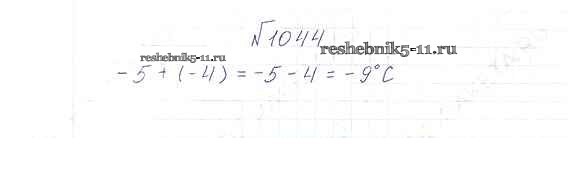 №1044
reshebnik5-11.ru
reshebnik5-11.ru
-5 + (-4) = -5 - 4 = -9°C